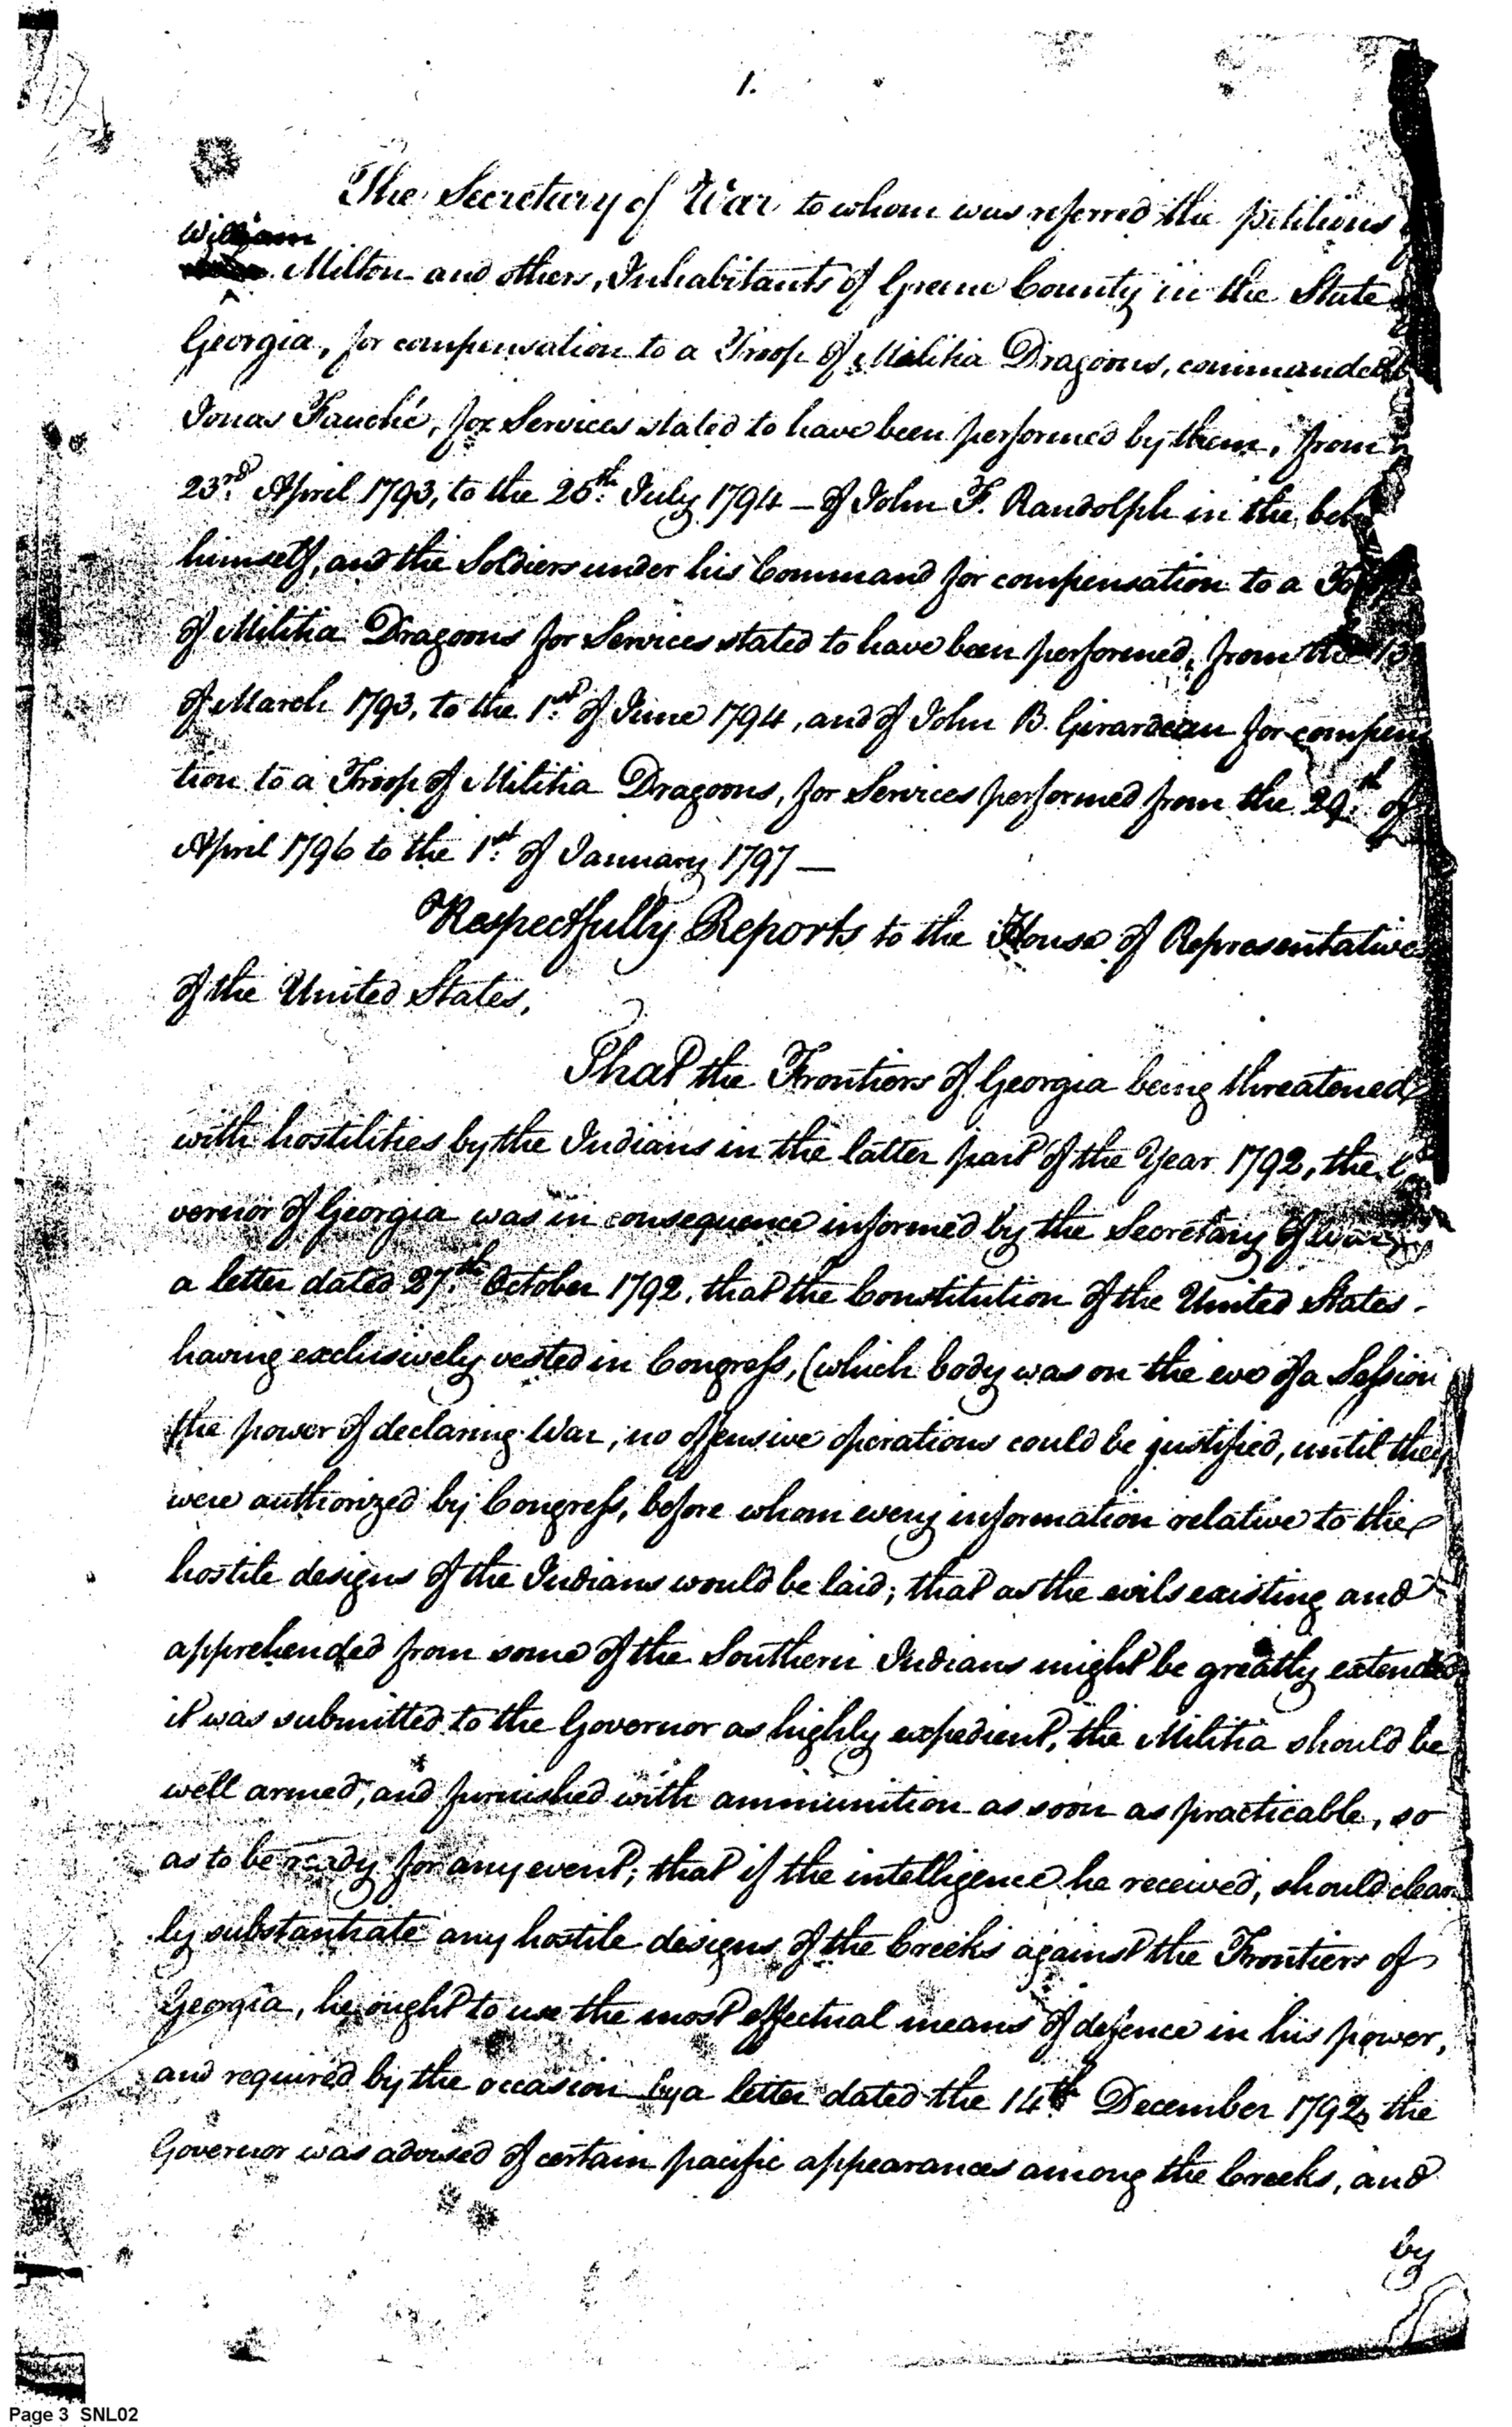 1.
The Secretary of War, to whom was referred the petitions
William
Milton and others, Inhabitants of Greene County in the State
Georgia, for compensation to a Troop of Militia Dragoons, commanded
Jonas Fauché, for Services stated to have been performed by them, from
23rd. April 1793, to the 25th. July 1794 — of John F. Randolph in the
himself, and the Soldiers under his Command for compensation to a
of Militia Dragoons for Services stated to have been performed, from the 13
of March 1793, to the 1st. of June 1794, and of John B. Girardeau for compen
tion to a Troop of Militia Dragoons, for Services performed from the 29.th of
April 1796 to the 1st. of January 1797 —
Respectfully Reports to the House of Representatives
of the United States,
That the Frontiers of Georgia being threatened
with hostilities by the Indians in the latter part of the Year 1792, the
vernor of Georgia was in consequence informed by the Secretary of War
a letter dated 27.th October 1792, that the Constitution of the United States
having exclusively vested in Congress, (which body was on the eve of a Session
the power of declaring War, no offensive operations could be justified, until they
were authorized by Congress, before whom every information relative to the
hostile designs of the Indians would be laid; that as the evils existing and
apprehended from some of the Southern Indians might be greatly extended
it was submitted to the Governor as highly expedient, the Militia should be
well armed, and furnished with ammunition as soon as practicable, so
as to be ready for any event; that if the intelligence he received, should clear
ly substantiate any hostile designs of the Creeks against the Frontiers of
Georgia, he ought to use the most effectual means of defence in his power,
and required by the occasion by a letter dated the 14th December 1792, the
Governor was advised of certain pacific appearances among the Creeks, and
by
Page 3 SNL02